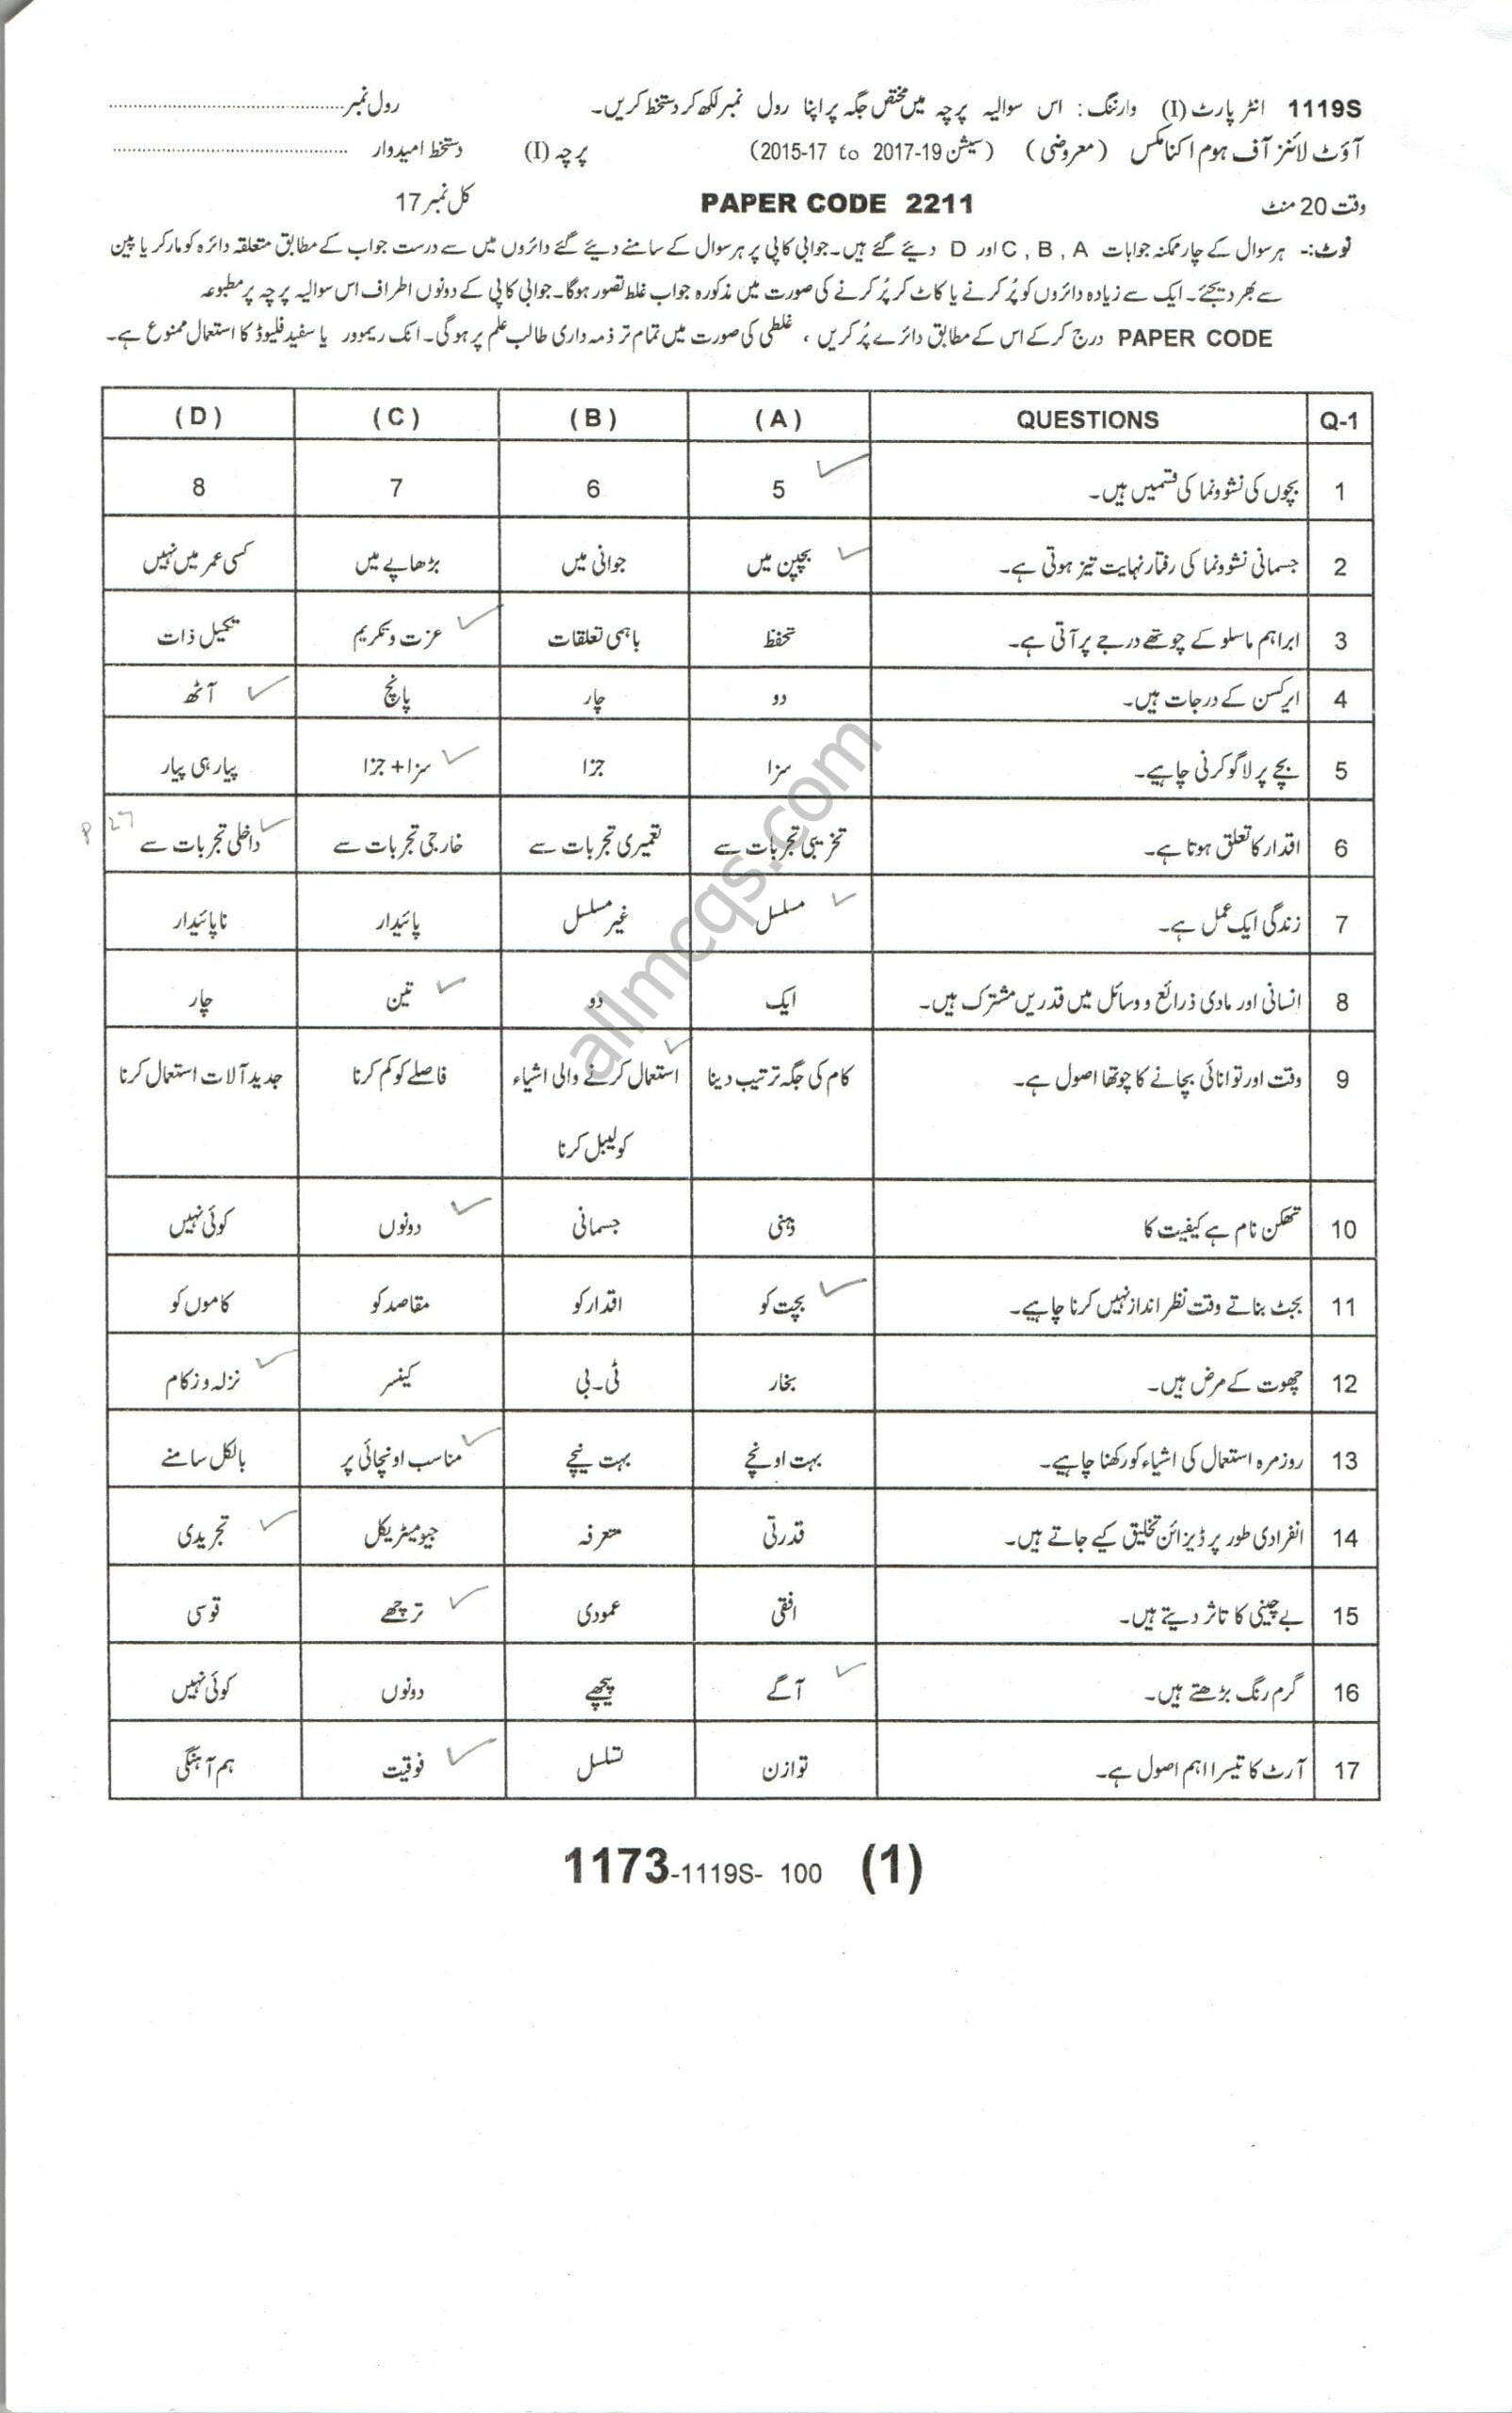 1119S انٹر پارٹ (I) وارننگ : اس سوالیہ پرچہ میں مختص جگہ پر اپنا رول نمبر لکھ کر دستخط کریں۔ رول نمبر
آؤٹ لائنز آف ہوم اکنامکس (معروضی) (سیشن 2015-17 to 2017-19) پرچہ (I) دستخط امیدوار
وقت 20 منٹ PAPER CODE 2211 کل نمبر 17
نوٹ:- ہر سوال کے چار ممکنہ جوابات A , B , C اور D دیئے گئے ہیں۔ جوابی کاپی پر ہر سوال کے سامنے دیئے گئے دائروں میں سے درست جواب کے مطابق متعلقہ دائرہ کو مارکر یا پین
سے بھر دیجئے۔ ایک سے زیادہ دائروں کو پُر کرنے یا کاٹ کر پُر کرنے کی صورت میں مذکورہ جواب غلط تصور ہوگا۔ جوابی کاپی کے دونوں اطراف اس سوالیہ پرچہ پر مطبوعہ
PAPER CODE درج کر کے اس کے مطابق دائرے پُر کریں ، غلطی کی صورت میں تمام تر ذمہ داری طالب علم پر ہوگی۔ انک ریموور یا سفید فلیوڈ کا استعمال ممنوع ہے۔
Q-1 QUESTIONS (A) (B) (C) (D)
1 بچوں کی نشوونما کی قسمیں ہیں۔ 5 6 7 8
2 جسمانی نشوونما کی رفتار نہایت تیز ہوتی ہے۔ بچپن میں جوانی میں بڑھاپے میں کسی عمر میں نہیں
3 ابراہم ماسلو کے چوتھے درجے پر آتی ہے۔ تحفظ باہمی تعلقات عزت و تکریم تکمیل ذات
4 ایرکسن کے درجات ہیں۔ دو چار پانچ آٹھ
5 بچے پر لاگو کرنی چاہیے۔ سزا جزا سزا + جزا پیار ہی پیار
6 اقدار کا تعلق ہوتا ہے۔ تخریبی تجربات سے تعمیری تجربات سے خارجی تجربات سے داخلی تجربات سے P 27
7 زندگی ایک عمل ہے۔ مسلسل غیر مسلسل پائیدار ناپائیدار
8 انسانی اور مادی ذرائع و وسائل میں قدریں مشترک ہیں۔ ایک دو تین چار
9 وقت اور توانائی بچانے کا چوتھا اصول ہے۔ کام کی جگہ ترتیب دینا استعمال کرنے والی اشیاء جدید آلات استعمال کرنا فاصلے کو کم کرنا
کو لیبل کرنا
10 تھکن نام ہے کیفیت کا ذہنی جسمانی دونوں کوئی نہیں
11 بجٹ بناتے وقت نظر انداز نہیں کرنا چاہیے۔ بچت کو اقدار کو مقاصد کو کاموں کو
12 چھوت کے مرض ہیں۔ بخار ٹی۔بی کینسر نزلہ و زکام
13 روزمرہ استعمال کی اشیاء کو رکھنا چاہیے۔ بہت اونچے بہت نیچے مناسب اونچائی پر بالکل سامنے
14 انفرادی طور پر ڈیزائن تخلیق کیے جاتے ہیں۔ قدرتی متعرفہ جیومیٹریکل تجریدی
15 بے چینی کا تاثر دیتے ہیں۔ افقی عمودی ترچھے قوسی
16 گرم رنگ بڑھتے ہیں۔ آگے پیچھے دونوں کوئی نہیں
17 آرٹ کا تیسرا اہم اصول ہے۔ توازن تسلسل فوقیت ہم آہنگی
allmcqs.com
1173-1119S- 100 (1)